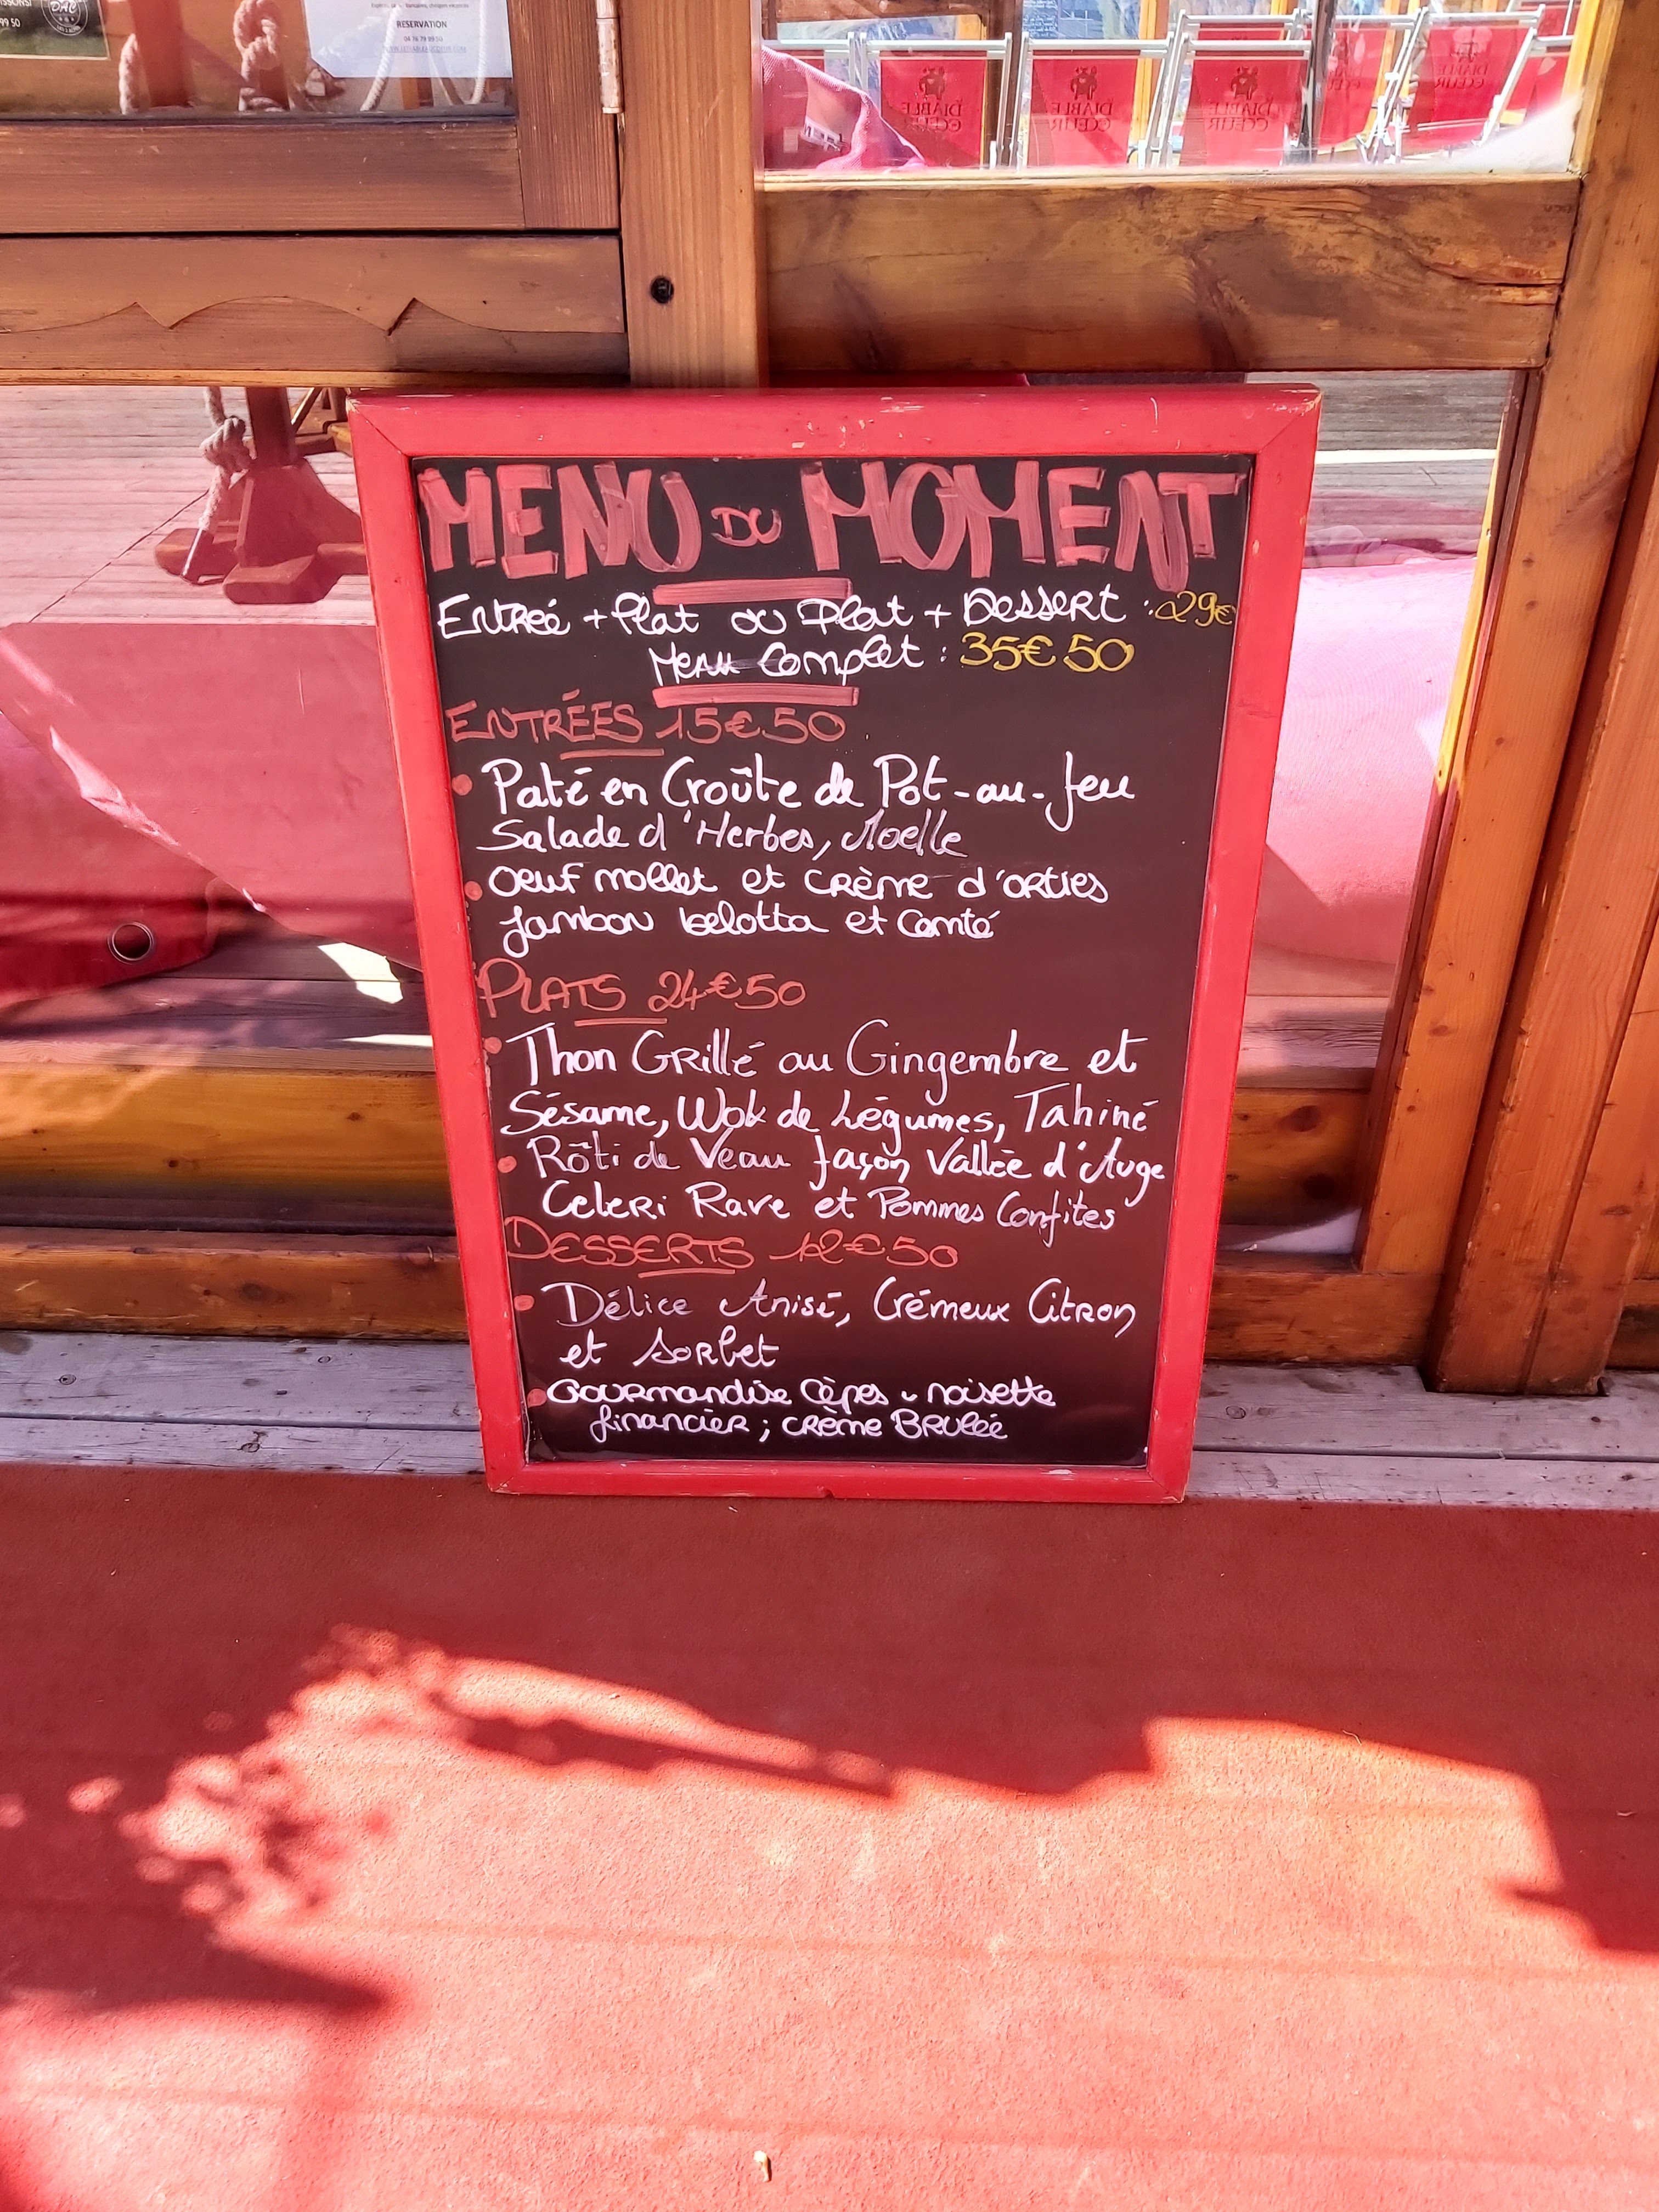 99 50
RESERVATION
04 76 79 99 50
DIABLE
CŒUR
DIABLE
CŒUR
DIABLE
CŒUR
MENU DU MOMENT
Entrée + Plat ou Plat + Dessert : 29€
Menu Complet : 35€50
ENTRÉES 15€50
• Paté en Croûte de Pot-au-feu
Salade d'Herbes, Moelle
• Oeuf mollet et crème d'orties
Jambon belotta et Comté
PLATS 24€50
• Thon Grillé au Gingembre et
Sésame, Wok de Légumes, Tahiné
• Rôti de Veau façon Vallée d'Auge
Celeri Rave et Pommes Confites
DESSERTS 12€50
• Délice Anisé, Crémeux Citron
et Sorbet
• Gourmandise Cèpes - noisette
financier ; crème Brulée